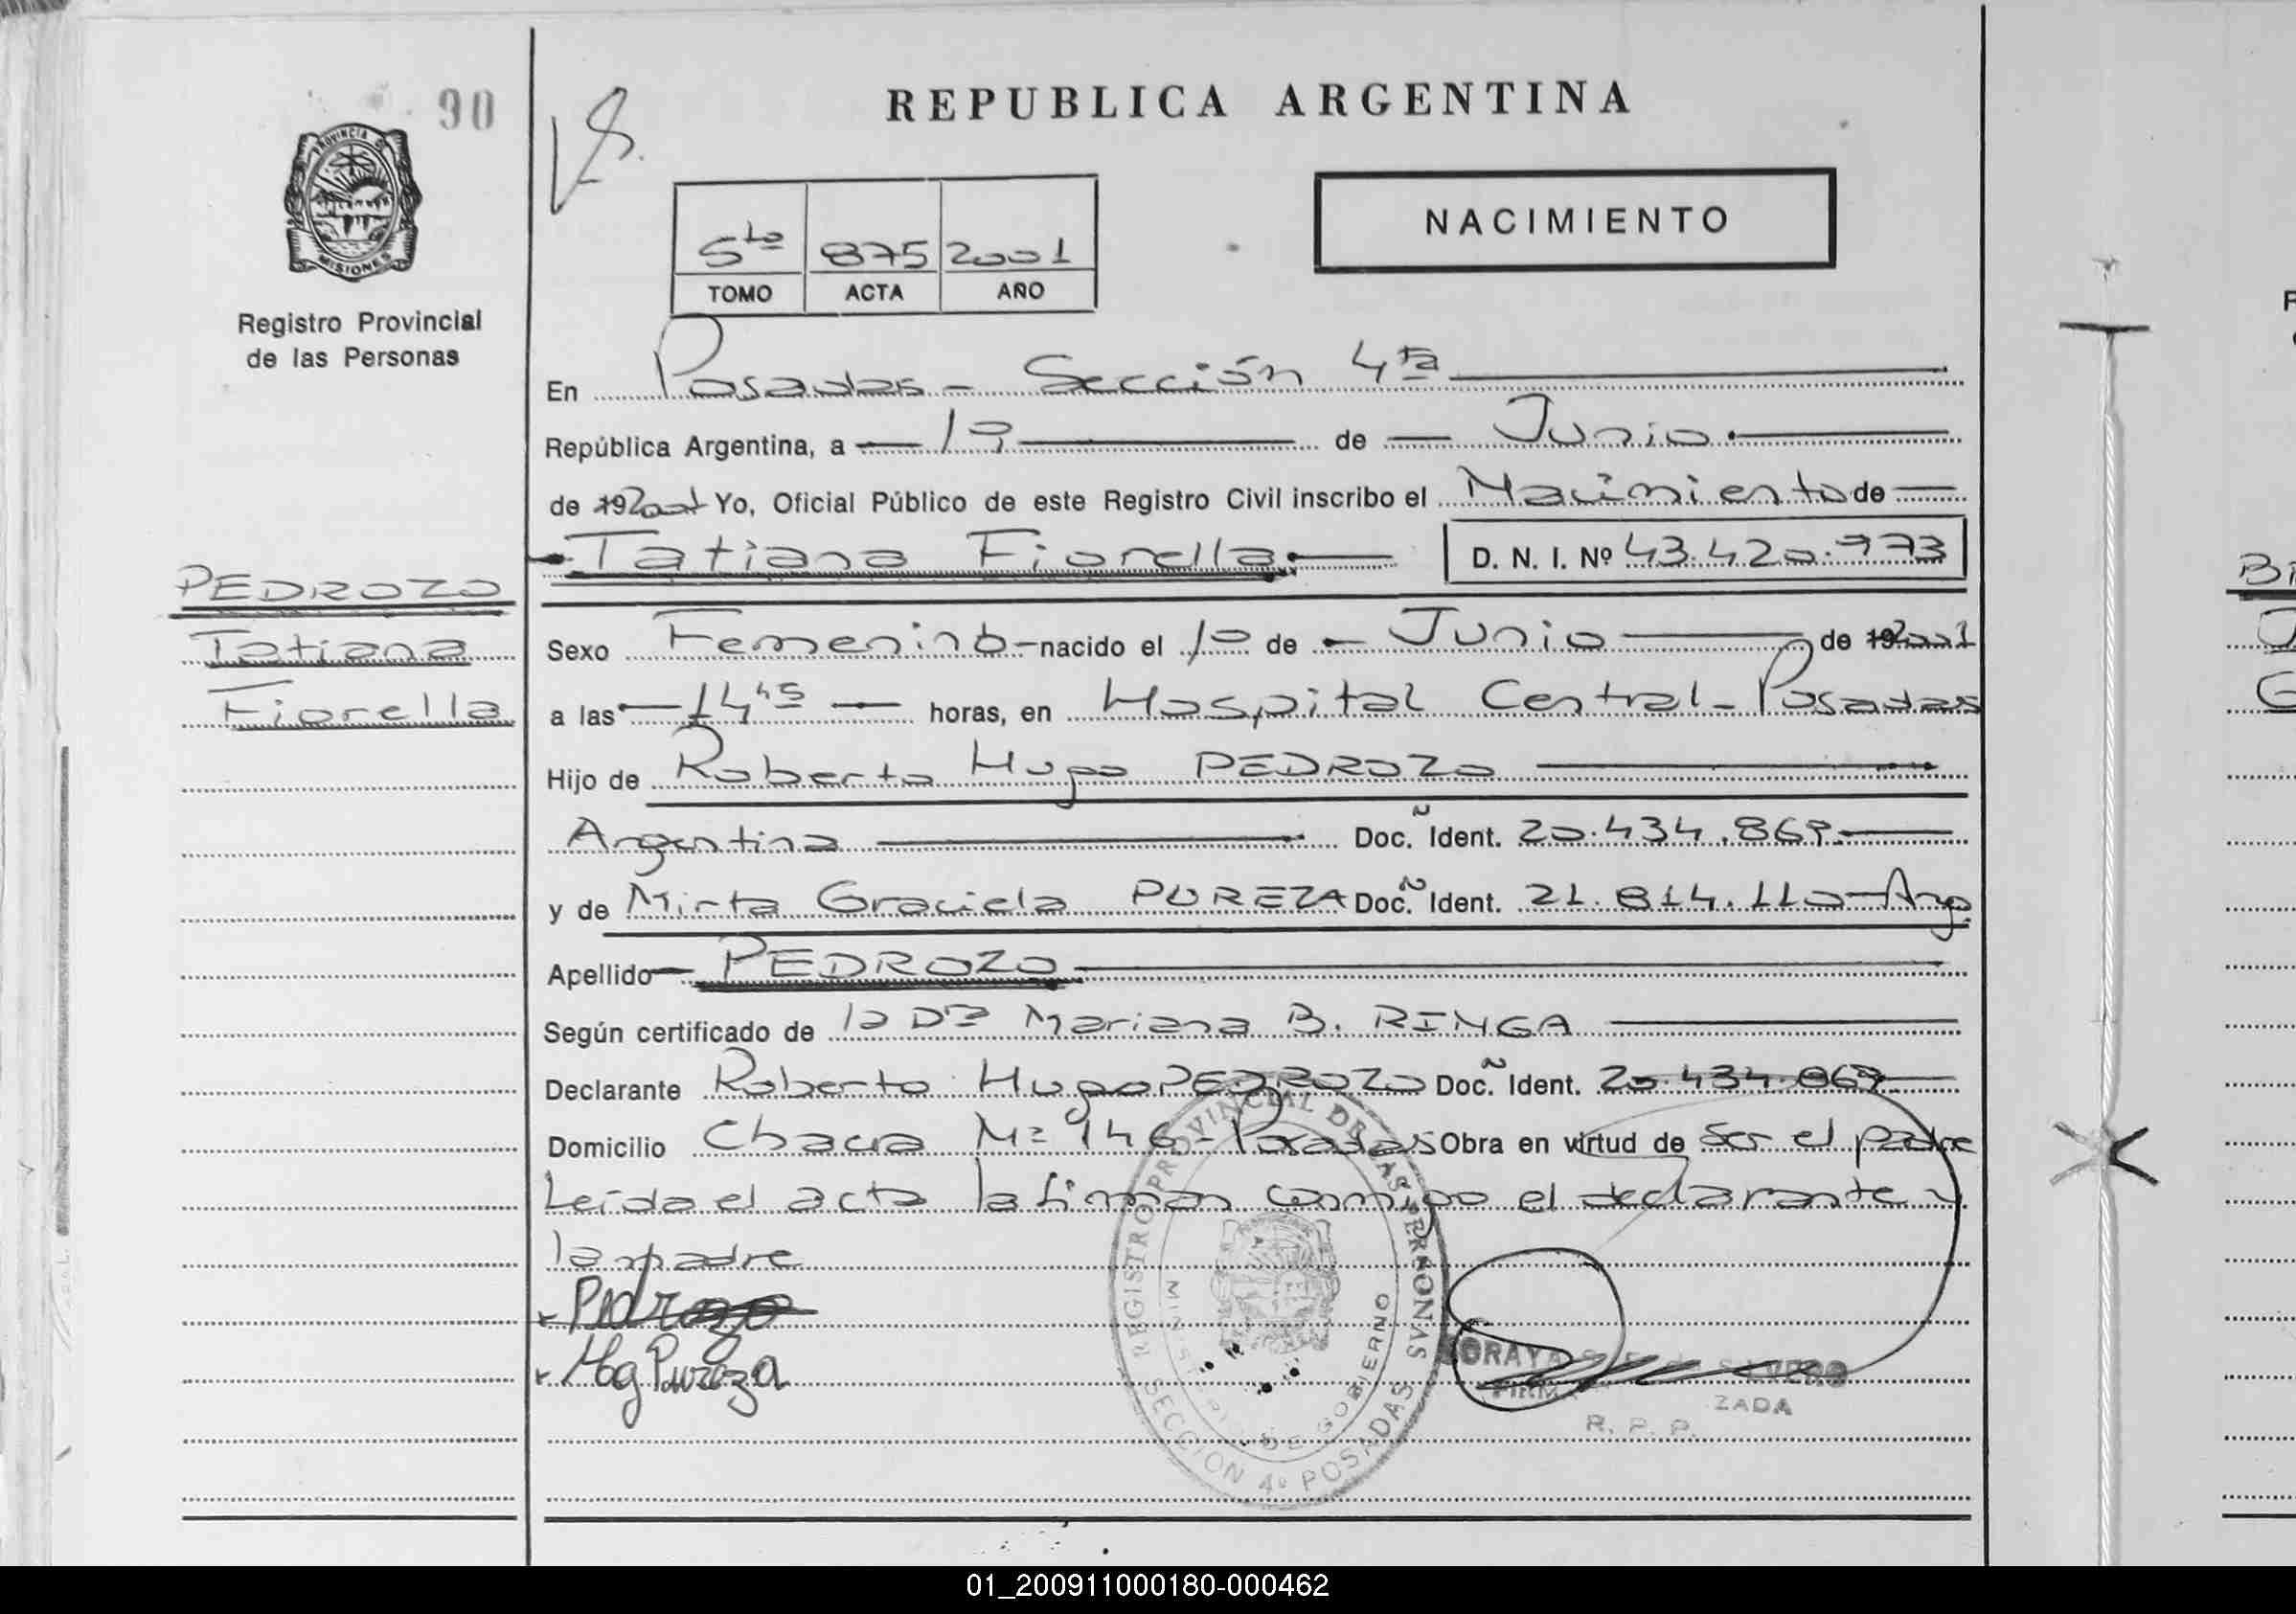 90
REPUBLICA ARGENTINA
PROVINCIA DE
MISIONES
NACIMIENTO
5to 875 2001
TOMO ACTA AÑO
Registro Provincial
de las Personas
En Posadas - Sección 4ta
República Argentina, a 19 de Junio
de 192001 Yo, Oficial Público de este Registro Civil inscribo el Nacimiento de
Tatiana Fiorella D. N. I. Nº 43.420.973
PEDROZO
Tatiana
Fiorella
Sexo Femenino nacido el 10 de Junio de 192001
a las 14 45 horas, en Hospital Central - Posadas
Hijo de Roberto Hugo PEDROZO
Argentina Doc. Ident. 20.434.869
y de Mirta Graciela PUREZA Doc. Ident. 21.814.110 - Arg
Apellido PEDROZO
Según certificado de la Dra Mariana B. RINGA
Declarante Roberto Hugo PEDROZO Doc. Ident. 20.434.869
Domicilio Chacra Nº 146 - Posadas Obra en virtud de ser el padre
Leída el acta la firman conmigo el declarante y
la madre
Pedrozo
Mg Pureza
REGISTRO PROVINCIAL DE LAS PERSONAS
MINISTERIO DE GOBIERNO
SECCION 4º POSADAS
SORAYA
ZADA
R. P. P.
01_200911000180-000462